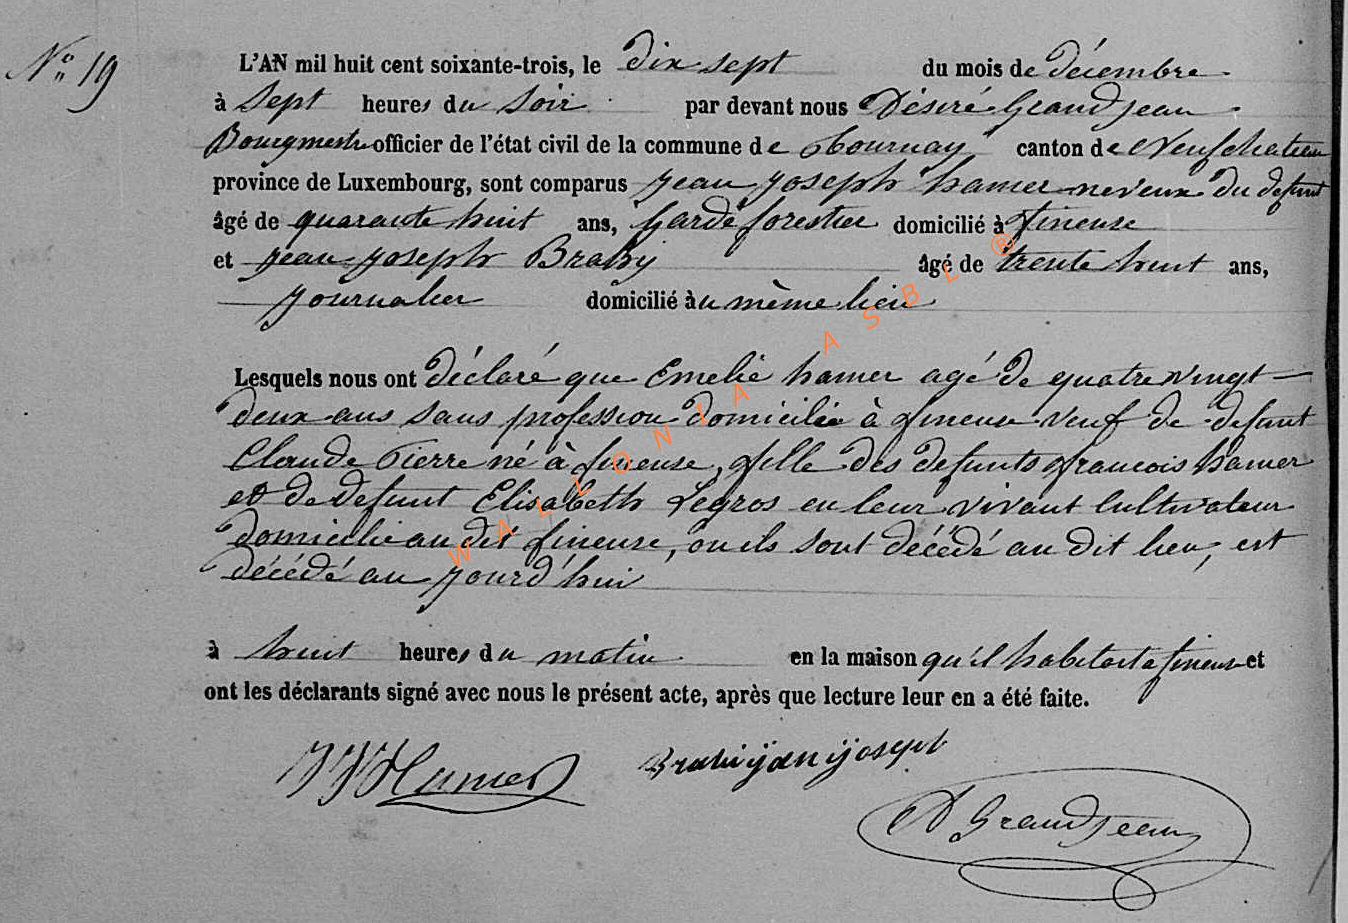 N° 19
L'AN mil huit cent soixante-trois, le dix sept du mois de décembre
à sept heures du soir par devant nous Désiré Grandjean
Bourgmestre officier de l'état civil de la commune de Tournay canton de Neufchateau
province de Luxembourg, sont comparus Jean Joseph hamer neveux du defunt
âgé de quarante huit ans, Garde forestier domicilié à fineuse
et Jean Joseph Brahy âgé de trente huit ans,
Journalier domicilié àu même lieu
Lesquels nous ont déclaré que Emelie hamer agé de quatre vingt
deux ans sans profession domicilie à fineuse veuf de defunt
Claude Pierre né à fineuse, fille des defunts francois hamer
et de defunt Elisabeth Legros en leur vivant Cultivateur
domicilie au dit fineuse, ou ils sont décédé au dit lieu, est
décédé au jourd'hui
à huit heures du matin en la maison qu'il habitait a fineuse et
ont les déclarants signé avec nous le présent acte, après que lecture leur en a été faite.
JJHamer Brahi ÿan ÿosept
D Grandjean
WALLONIA ASBL ®